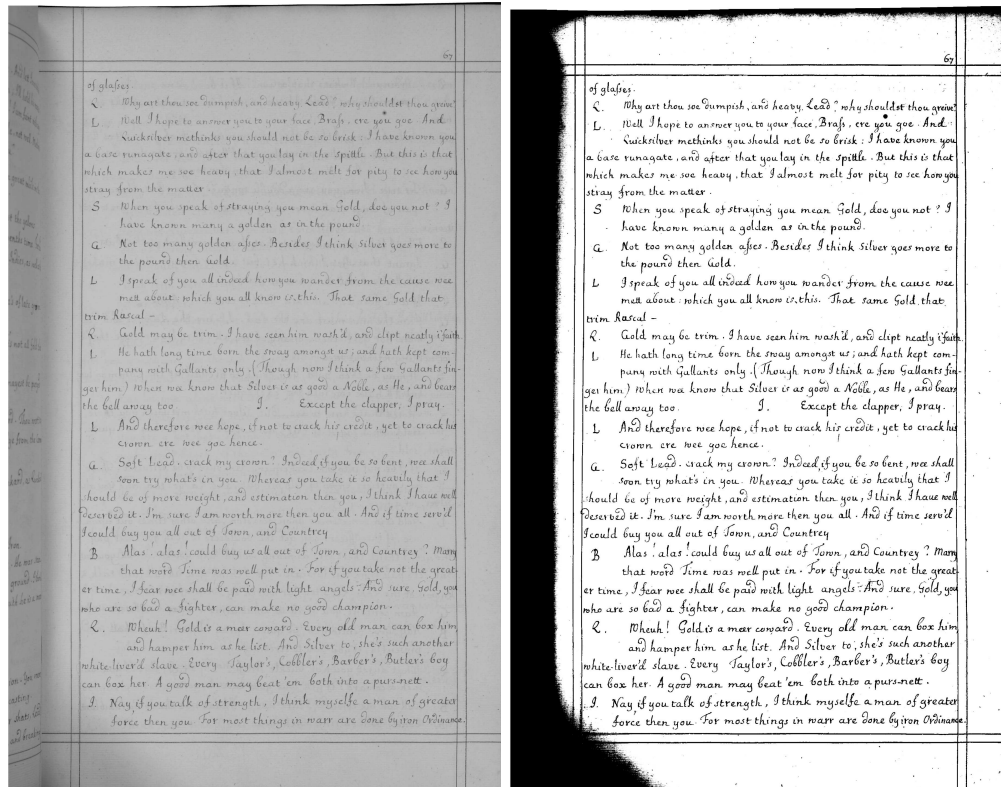 67
of glaſses.
Q. Why art thou soe dumpish, and heavy, Lead? why shouldst thou greive?
L Well I hope to answer you to your face, Braſs, ere you goe. And
Quicksilver methinks you should not be so brisk: I have known you
a base runagate, and after that you lay in the spittle. But this is that
which makes me soe heavy, that I almost melt for pity to see how you
stray from the matter.
S When you speak of straying you mean Gold, doe you not? I
have known many a golden as in the pound.
G. Not too many golden aſses. Besides I think Silver goes more to
the pound then Gold.
L I speak of you all indeed how you wander from the cause wee
mett about: which you all know is, this. That same Gold, that
trim Rascal –
Q. Gold may be trim. I have seen him wash'd, and clipt neatly i'faith.
L He hath long time born the sway amongst us; and hath kept com-
pany with Gallants only. (Though now I think a few Gallants fin-
ger him) When we know that Silver is as good a Noble, as He, and bears
the bell away too. I. Except the clapper, I pray.
L And therefore wee hope, if not to crack his credit, yet to crack his
crown ere wee goe hence.
G. Soft Lead. crack my crown? Indeed, if you be so bent, wee shall
soon try what's in you. Whereas you take it so heavily that I
should be of more weight, and estimation then you, I think I have well
deserved it. I'm sure I am worth more then you all. And if time serv'd
I could buy you all out of Town, and Countrey
B Alas! alas! could buy us all out of Town, and Countrey? Marry
that word Time was well put in. For if you take not the great-
er time, I fear wee shall be paid with light angels. And sure, Gold, you
who are so bad a fighter, can make no good champion.
Q. Wheuh! Gold is a meer coward. Every old man can box him
and hamper him as he list. And Silver to, she's such another
white-liver'd slave. Every Taylor's, Cobbler's, Barber's, Butler's boy
can box her. A good man may beat 'em both into a purs-nett.
I. Nay if you talk of strength, I think myselfe a man of greater
force then you. For most things in warr are done by iron Ordinance.
67
of glaſses.
Q. Why art thou soe dumpish, and heavy, Lead? why shouldst thou greive?
L. Well I hope to answer you to your face, Braſs, ere you goe. And
Quicksilver methinks you should not be so brisk: I have known you
a base runagate, and after that you lay in the spittle. But this is that
which makes me soe heavy, that I almost melt for pity to see how you
stray from the matter.
S When you speak of straying you mean Gold, doe you not? I
have known many a golden as in the pound.
G. Not too many golden aſses. Besides I think Silver goes more to
the pound then Gold.
L I speak of you all indeed how you wander from the cause wee
mett about: which you all know is, this. That same Gold, that
trim Rascal –
Q. Gold may be trim. I have seen him wash'd, and clipt neatly i'faith.
L He hath long time born the sway amongst us; and hath kept com-
pany with Gallants only. (Though now I think a few Gallants fin-
ger him) When we know that Silver is as good a Noble, as He, and bears
the bell away too. I. Except the clapper, I pray.
L And therefore wee hope, if not to crack his credit, yet to crack his
crown ere wee goe hence.
G. Soft Lead. crack my crown? Indeed, if you be so bent, wee shall
soon try what's in you. Whereas you take it so heavily that I
should be of more weight, and estimation then you, I think I have well
deserved it. I'm sure I am worth more then you all. And if time serv'd
I could buy you all out of Town, and Countrey
B Alas! alas! could buy us all out of Town, and Countrey? Marry
that word Time was well put in. For if you take not the great-
er time, I fear wee shall be paid with light angels. And sure, Gold, you
who are so bad a fighter, can make no good champion.
Q. Wheuh! Gold is a meer coward. Every old man can box him
and hamper him as he list. And Silver to, she's such another
white-liver'd slave. Every Taylor's, Cobbler's, Barber's, Butler's boy
can box her. A good man may beat 'em both into a purs-nett.
I. Nay if you talk of strength, I think myselfe a man of greater
force then you. For most things in warr are done by iron Ordinance.